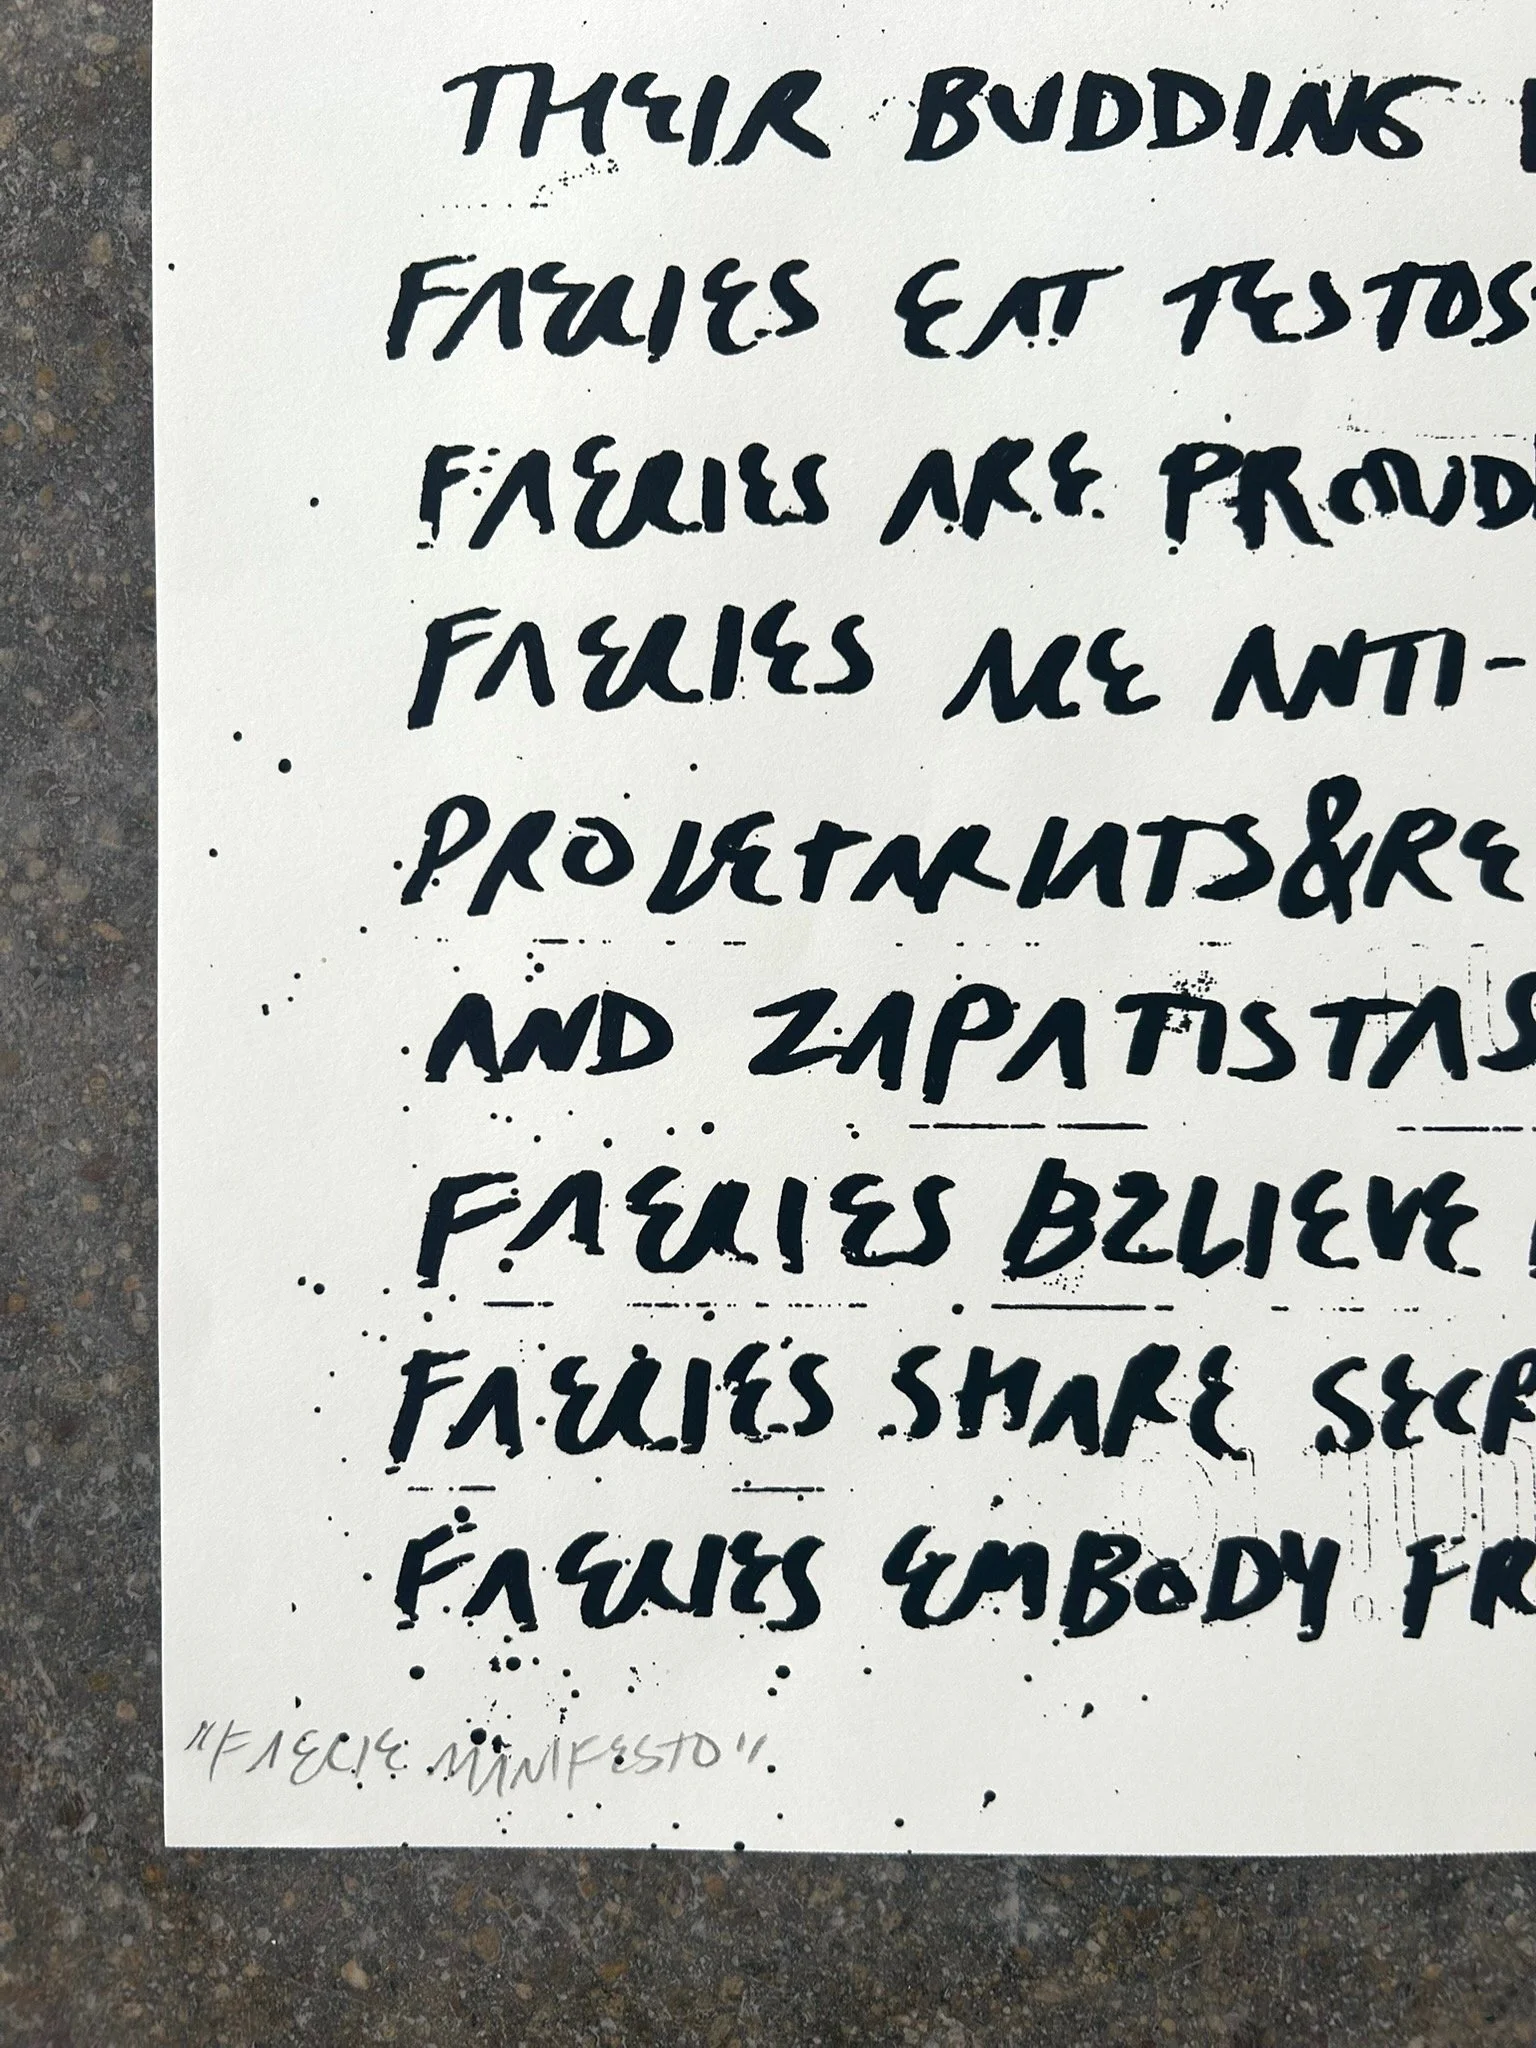 THEIR BUDDING
FAERIES EAT TESTOS
FAERIES ARE PROUD
FAERIES ARE ANTI-
PROLETARIATS&RE
AND ZAPATISTAS
FAERIES BELIEVE
FAERIES SHARE SECR
FAERIES EMBODY FR
"FAERIE MINIFESTO"